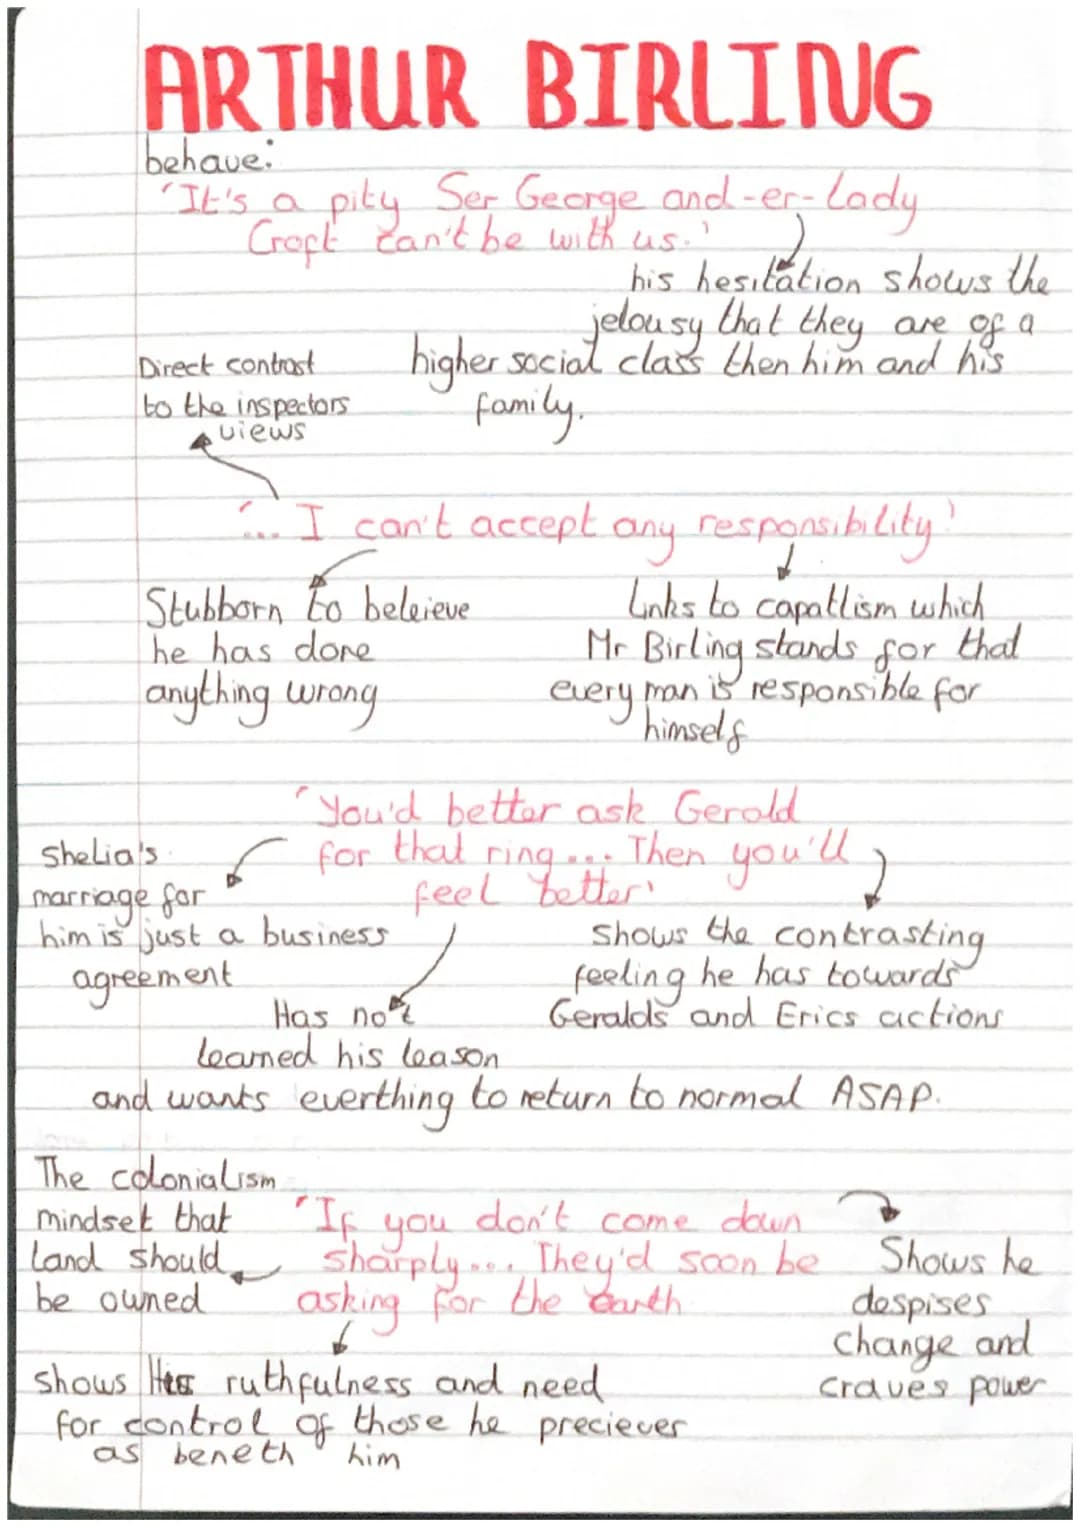 ARTHUR BIRLING
behave:
"It's a pity Ser George and-er-Lady
Croft can't be with us.'
his hesitation shows the
jelousy that they are of a
higher social class then him and his
family.
Direct contrast
to the inspectors
views
'... I can't accept any responsibility'
Stubborn to beleieve
he has done
anything wrong
Links to capatlism which
Mr Birling stands for that
every man is responsible for
himself
'You'd better ask Gerald
for that ring... Then you'll
feel better'
Shelia's
marriage for
him is just a business
agreement
Shows the contrasting
feeling he has towards
Geralds and Erics actions
Has not
learned his leason
and wants everthing to return to normal ASAP.
The colonialism
mindset that
land should
be owned
"If you don't come down
sharply... They'd soon be
asking for the earth
Shows he
despises
change and
craves power
shows His ruthfulness and need
for control of those he preciever
as beneth him